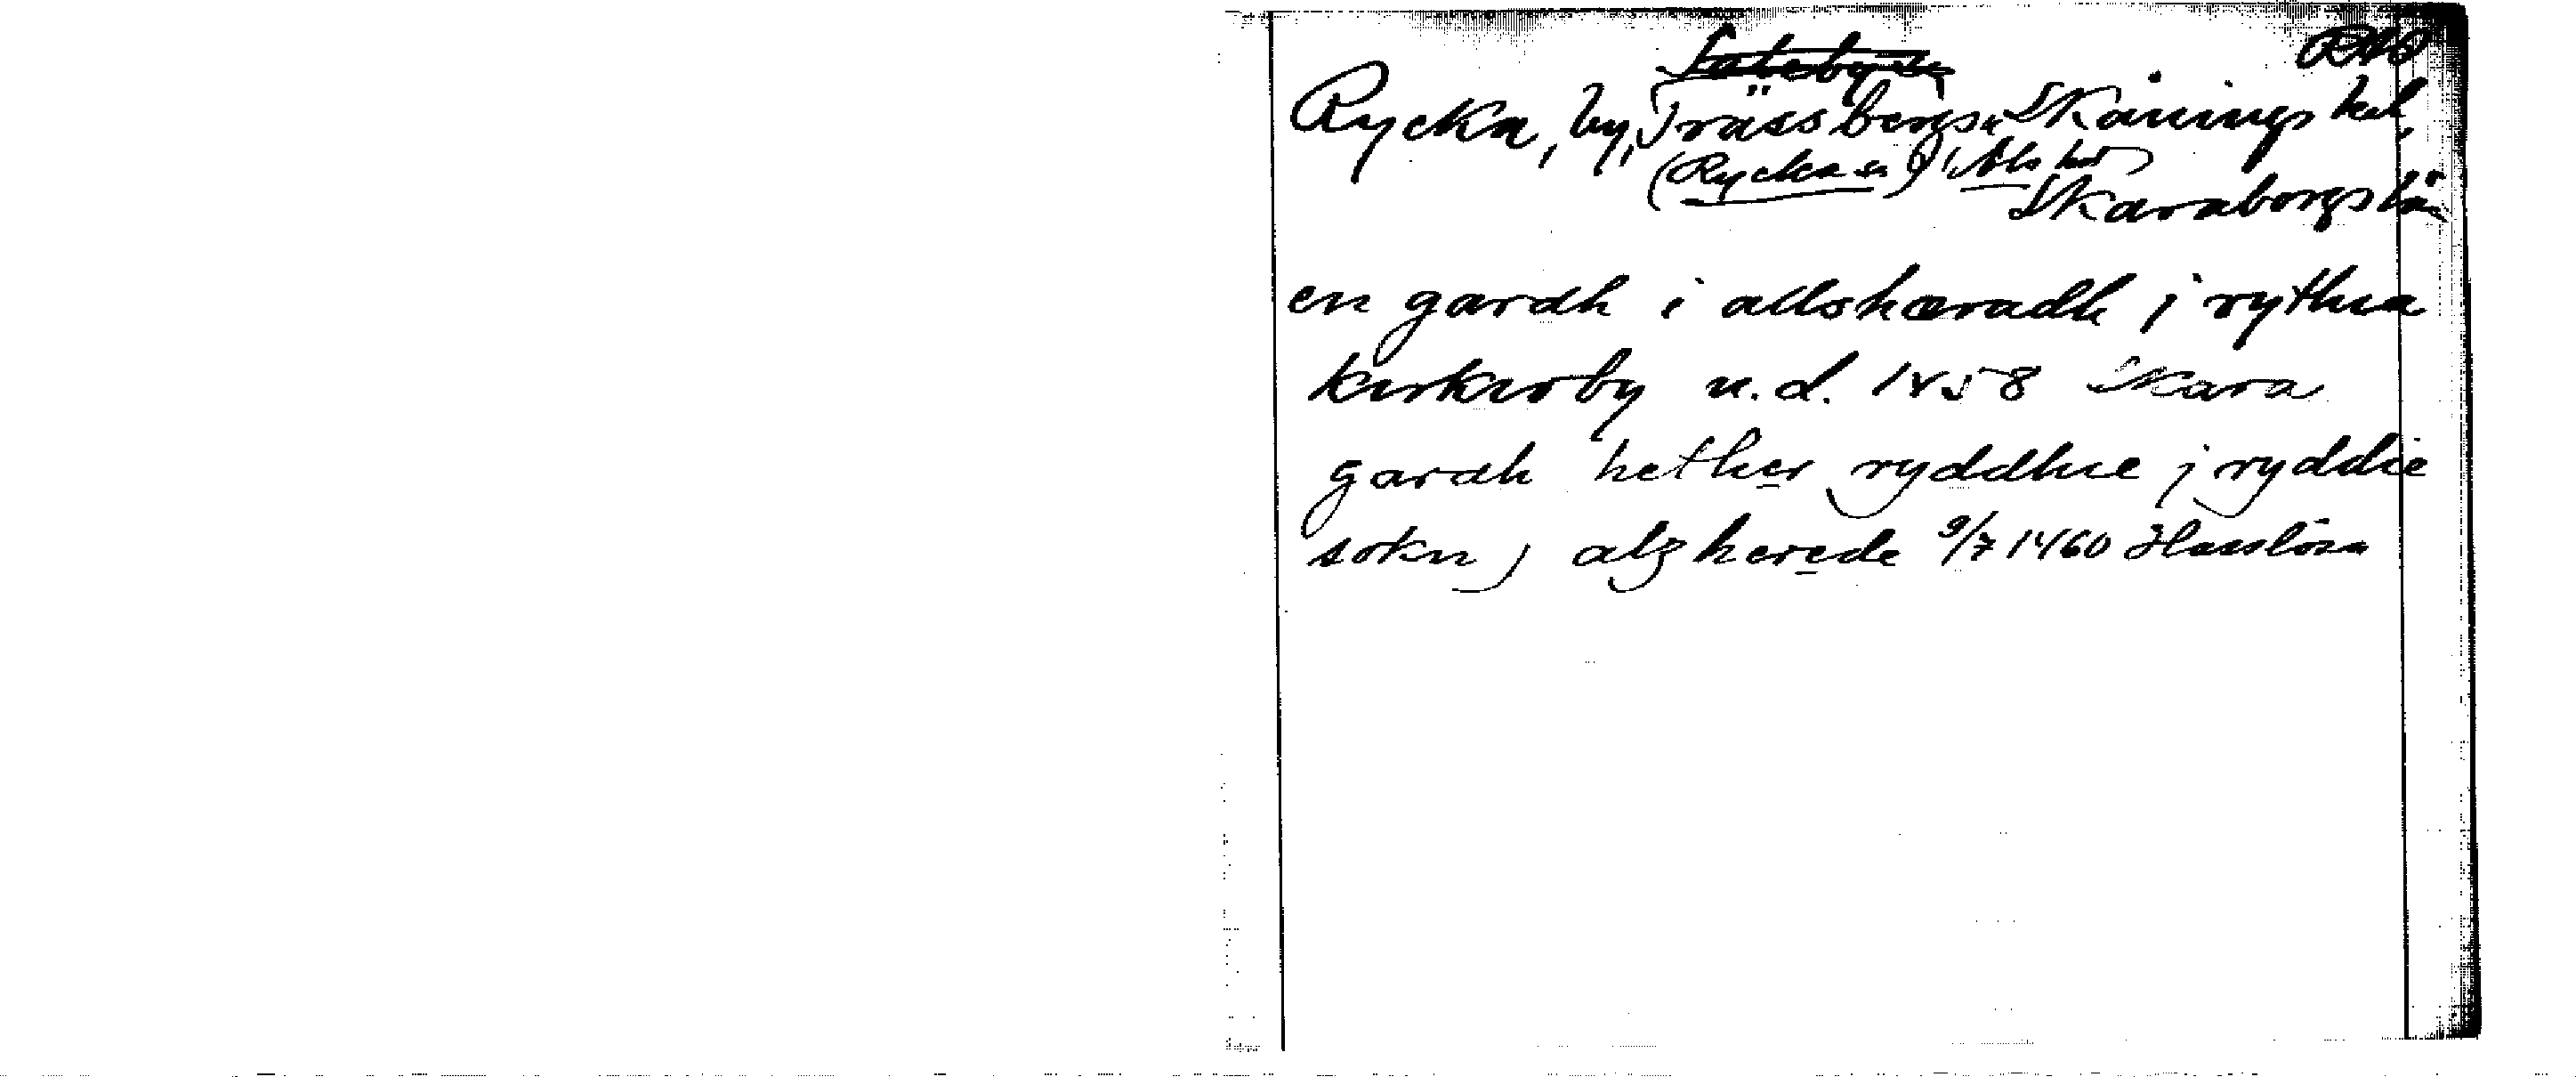 RAO
Rycka, by, Trässbergs sn Skånings hd,
(Rycka sn) (Als hd)
Skaraborgs län
en gardh i allshæradh j rythia
kirkioby u.d. 1458 Skara
gardh hether ryddhie j ryddie
sokn j alzherede 9/7 1460 Hasslösa